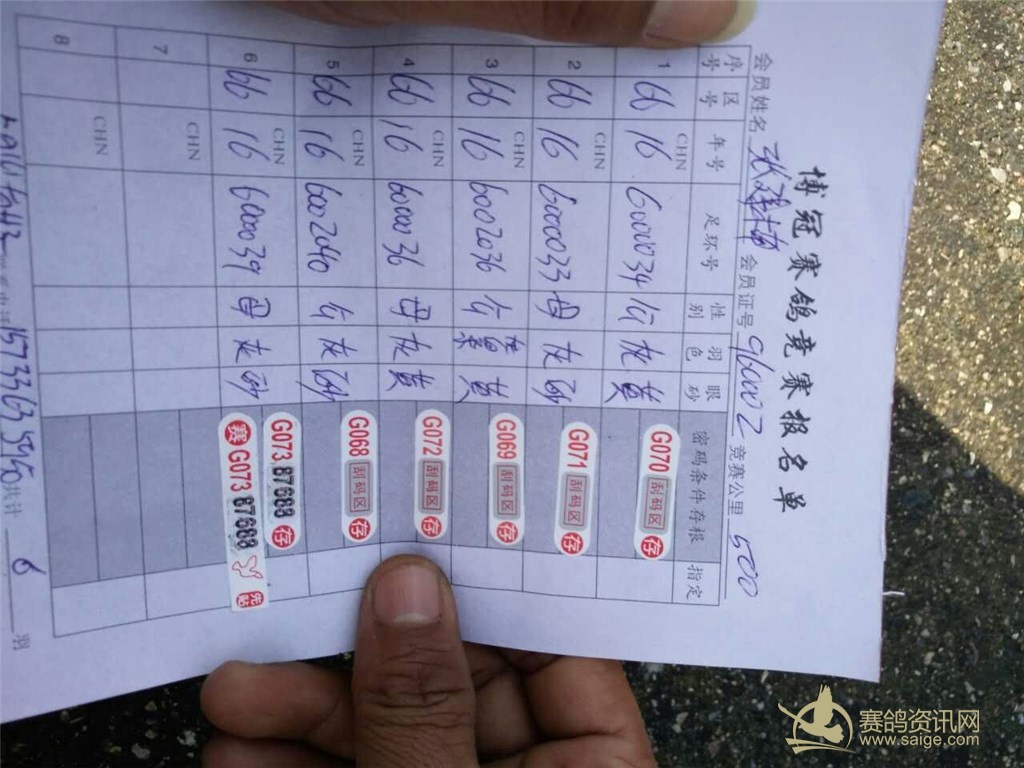 博冠赛鸽竞赛报名单
会员姓名 会员证号 96002 竞赛公里 500
序号 区号 年号 足环号 性别 羽色 眼砂 密码条件存根 指定
1 66 CHN 16 6000034 灰 黄 G070 刮码区 存
2 66 CHN 16 6000033 母 灰 砂 G071 刮码区 存
3 66 CHN 16 6002036 黄 G069 刮码区 存
4 66 CHN 16 6000036 母 灰 黄 G072 刮码区 存
5 66 CHN 16 6002040 灰 砂 G068 刮码区 存
6 66 CHN 16 6000039 母 灰 砂 G073 87688 存
赛 G073 87688 先贴
7 CHN
8 CHN
15733635950 共计 6 羽
赛鸽资讯网
www.saige.com